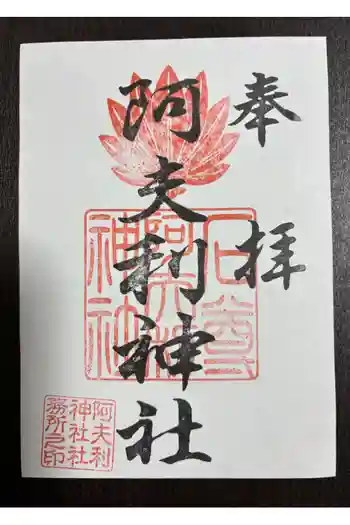 奉拝
阿夫利神社
石尊
阿夫利
神社
阿夫利
神社社
務所之印